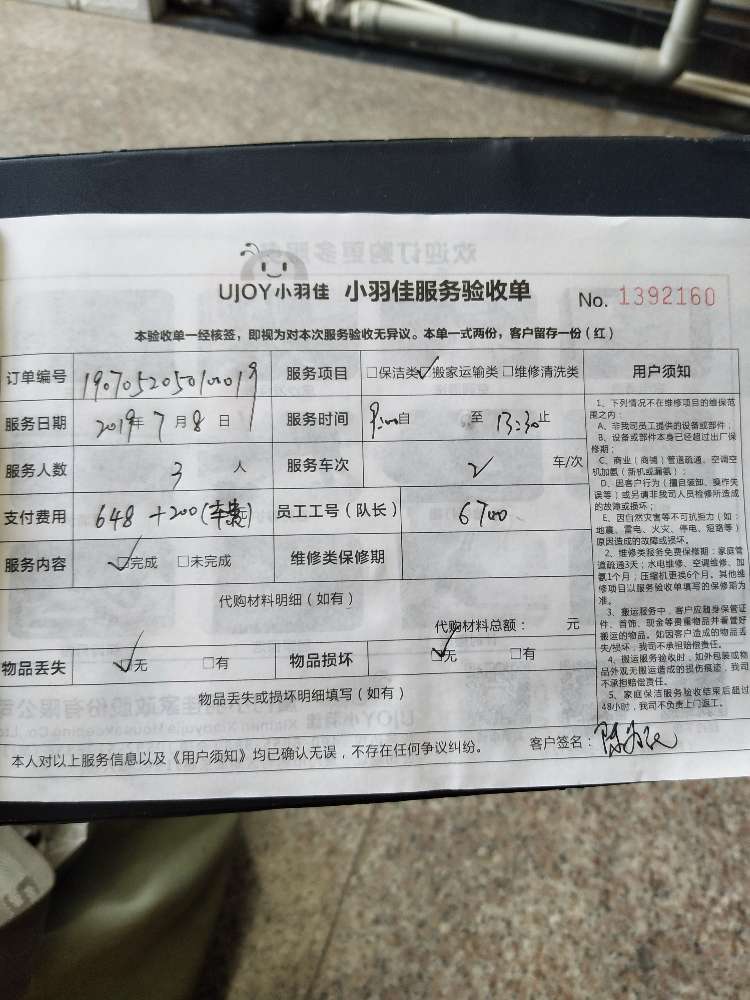 UJOY小羽佳 小羽佳服务验收单 No. 1392160
本验收单一经核签，即视为对本次服务验收无异议。本单一式两份，客户留存一份（红）
订单编号 1907052050100019 服务项目 □保洁类☑搬家运输类 □维修清洗类
服务日期 2019年 7 月 8 日 服务时间 9:00自 至 13:30止
服务人数 3 人 服务车次 2 车/次
支付费用 648 +200(车费) 员工工号（队长） 6700
服务内容 ☑完成 □未完成 维修类保修期
代购材料明细（如有）
代购材料总额： 元
物品丢失 ☑无 □有 物品损坏 ☑无 □有
物品丢失或损坏明细填写（如有）
本人对以上服务信息以及《用户须知》均已确认无误，不存在任何争议纠纷。 客户签名：
用户须知
1、下列情况不在维修项目的维保范
围之内：
A、非我司员工提供的设备或部件；
B、设备或部件本身已经超过出厂保
修期；
C、商业（商铺）管道疏通、空调空
机加氨（新机或漏氨）；
D、因客户行为（擅自装卸、操作失
误等）或另请非我司人员检修所造成
的故障或损坏；
E、因自然灾害等不可抗拒力（如：
地震、雷电、火灾、停电、短路等）
原因造成的故障或损坏。
2、维修类服务免费保修期：家庭管
道疏通3天；水电维修、空调维修、加
氨1个月；压缩机更换6个月。其他维
修项目以服务验收单填写的保修期为
准。
3、搬运服务中，客户应随身保管证
件、首饰、现金等贵重物品并看管好
搬运的物品。如因客户造成的物品丢
失/损坏，我司不承担赔偿责任。
4、搬运服务验收时，如外包装或物
品外观无搬运造成的损伤痕迹，我司
不承担赔偿责任。
5、家庭保洁服务验收结束后超过
48小时，我司不负责上门返工。